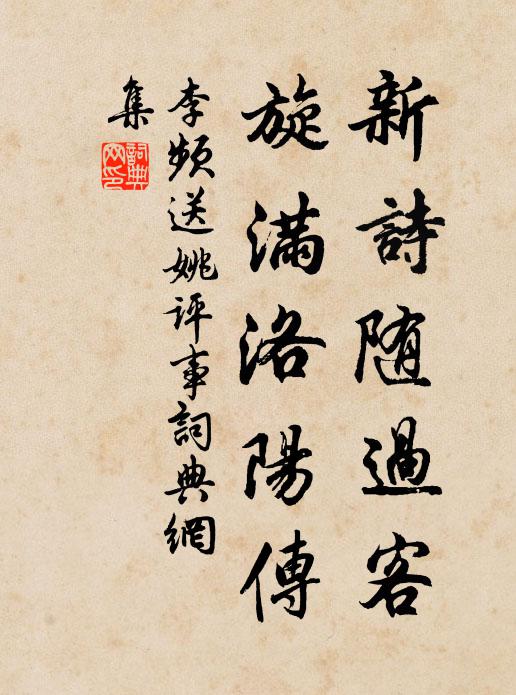 新詩随過客
旋満洛陽傳
李頻送姚評事詞典網
集
詞典
网印